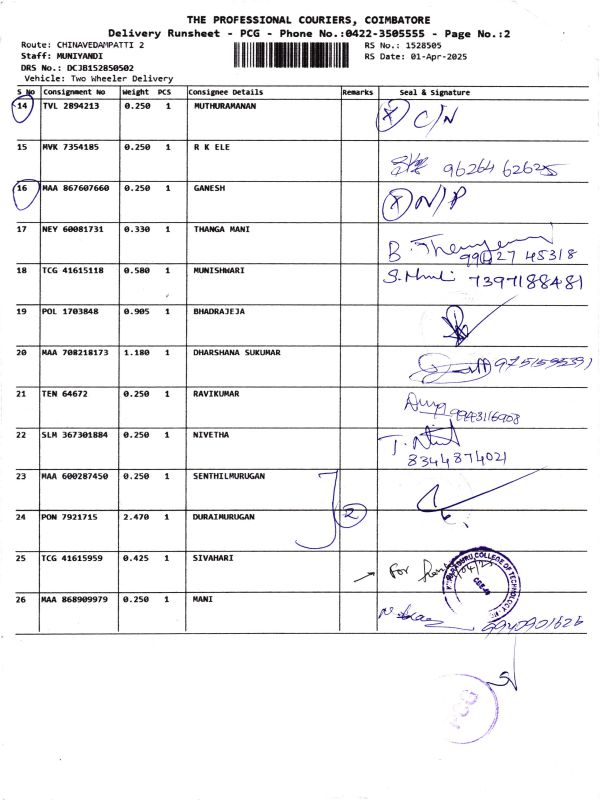 THE PROFESSIONAL COURIERS, COIMBATORE
Delivery Runsheet - PCG - Phone No.:0422-3505555 - Page No.:2
Route: CHINAVEDAMPATTI 2 RS No.: 1528505
Staff: MUNIYANDI RS Date: 01-Apr-2025
DRS No.: DCJB152850502
Vehicle: Two Wheeler Delivery
S No Consignment No Weight PCS Consignee Details Remarks Seal & Signature
14 TVL 2894213 0.250 1 MUTHURAMANAN X C/N
15 MVK 7354185 0.250 1 R K ELE 96264 62625
16 MAA 867607660 0.250 1 GANESH X N/P
17 NEY 60081731 0.330 1 THANGA MANI B. 45318
18 TCG 41615118 0.580 1 MUNISHWARI 7397188481
19 POL 1703848 0.905 1 BHADRAJEJA
20 MAA 708218173 1.180 1 DHARSHANA SUKUMAR
21 TEN 64672 0.250 1 RAVIKUMAR
22 SLM 367301884 0.250 1 NIVETHA
8344874021
23 MAA 600287450 0.250 1 SENTHILMURUGAN
24 PON 7921715 2.470 1 DURAIMURUGAN 2
25 TCG 41615959 0.425 1 SIVAHARI For
COLLEGE OF TECHNOLOGY
26 MAA 868909979 0.250 1 MANI 9940901626
PCG